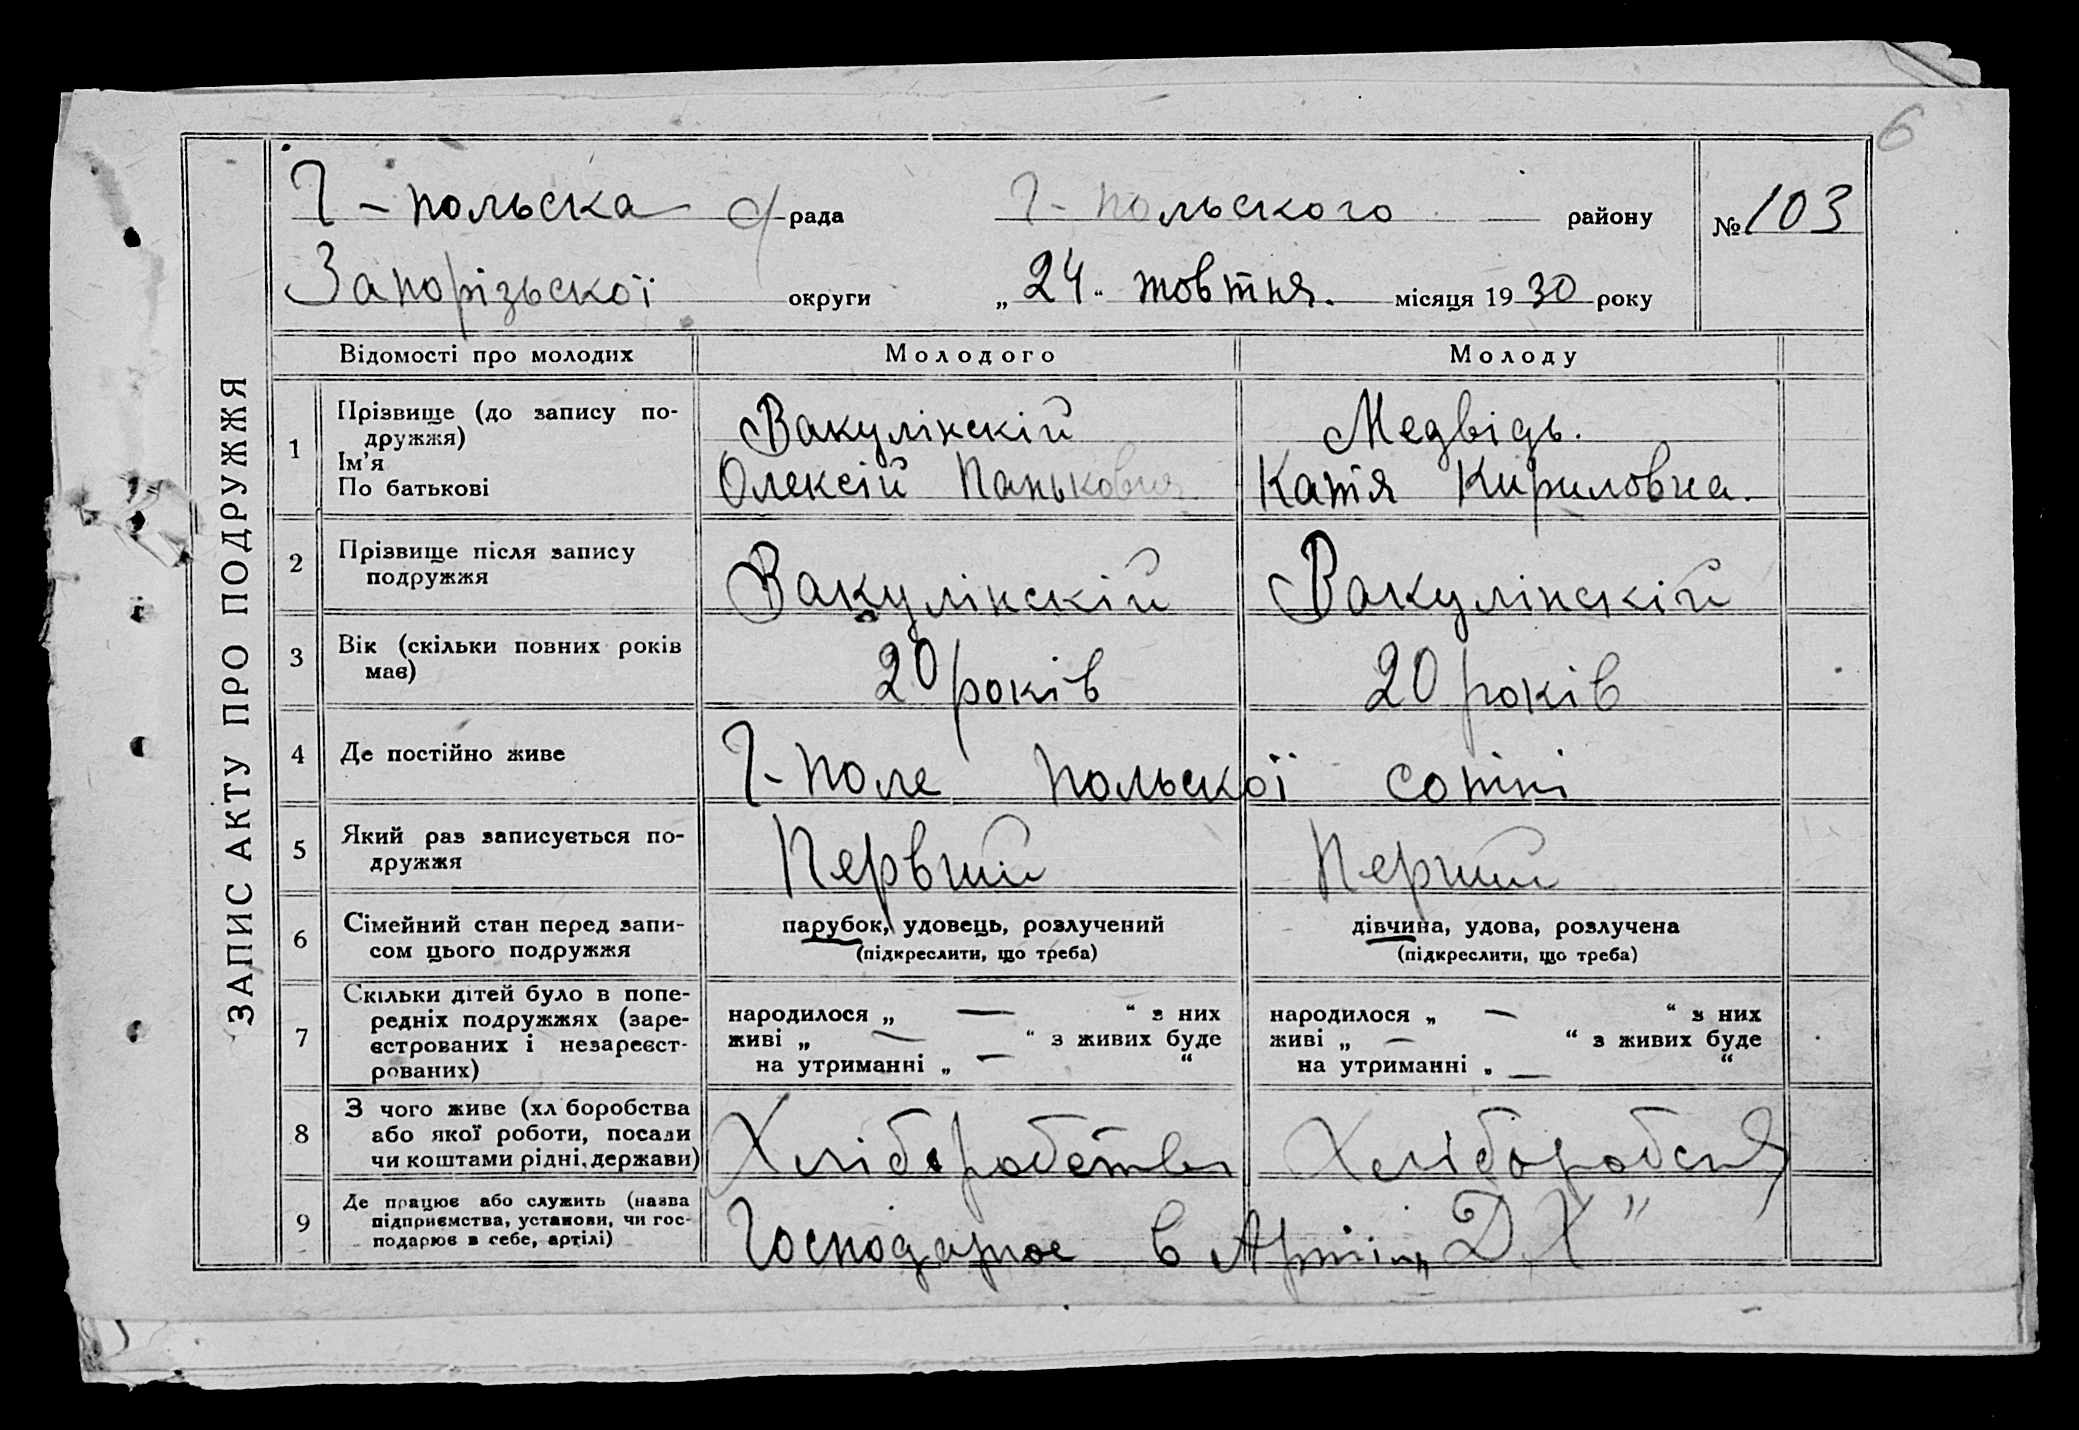 6
Г-польска с/рада Г-польского району № 103
Запорізьскої округи „24“ жовтня. місяця 1930 року
ЗАПИС АКТУ ПРО ПОДРУЖЖЯ
Відомості про молодих Молодого Молоду
1 Прізвище (до запису подружжя) Вакулінскій Медвідь.
Ім’я
По батькові Олексій Панькович Катя Кириловна.
2 Прізвище після запису
подружжя Вакулінскій Вакулінскій
3 Вік (скільки повних років
має) 20 років 20 років
4 Де постійно живе Г-поле польскої сотні
5 Який раз записується по-
дружжя Первший Перший
6 Сімейний стан перед запи- парубок, удовець, розлучений дівчина, удова, розлучена
сом цього подружжя (підкреслити, що треба) (підкреслити, що треба)
7 Скільки дітей було в попе-
редніх подружжях (заре- народилося „ — “ з них народилося „ — “ з них
єстрованих і незареєст- живі „ — “ з живих буде живі „ — “ з живих буде
рованих) на утриманні „ — “ на утриманні „ — “
8 З чого живе (хл боробства
або якої роботи, посади
чи коштами рідні, держави) Хліборобство
9 Де працює або служить (назва
підприємства, установи, чи гос-
подарює в себе, артілі) Господарює в Артілі „ДХ“